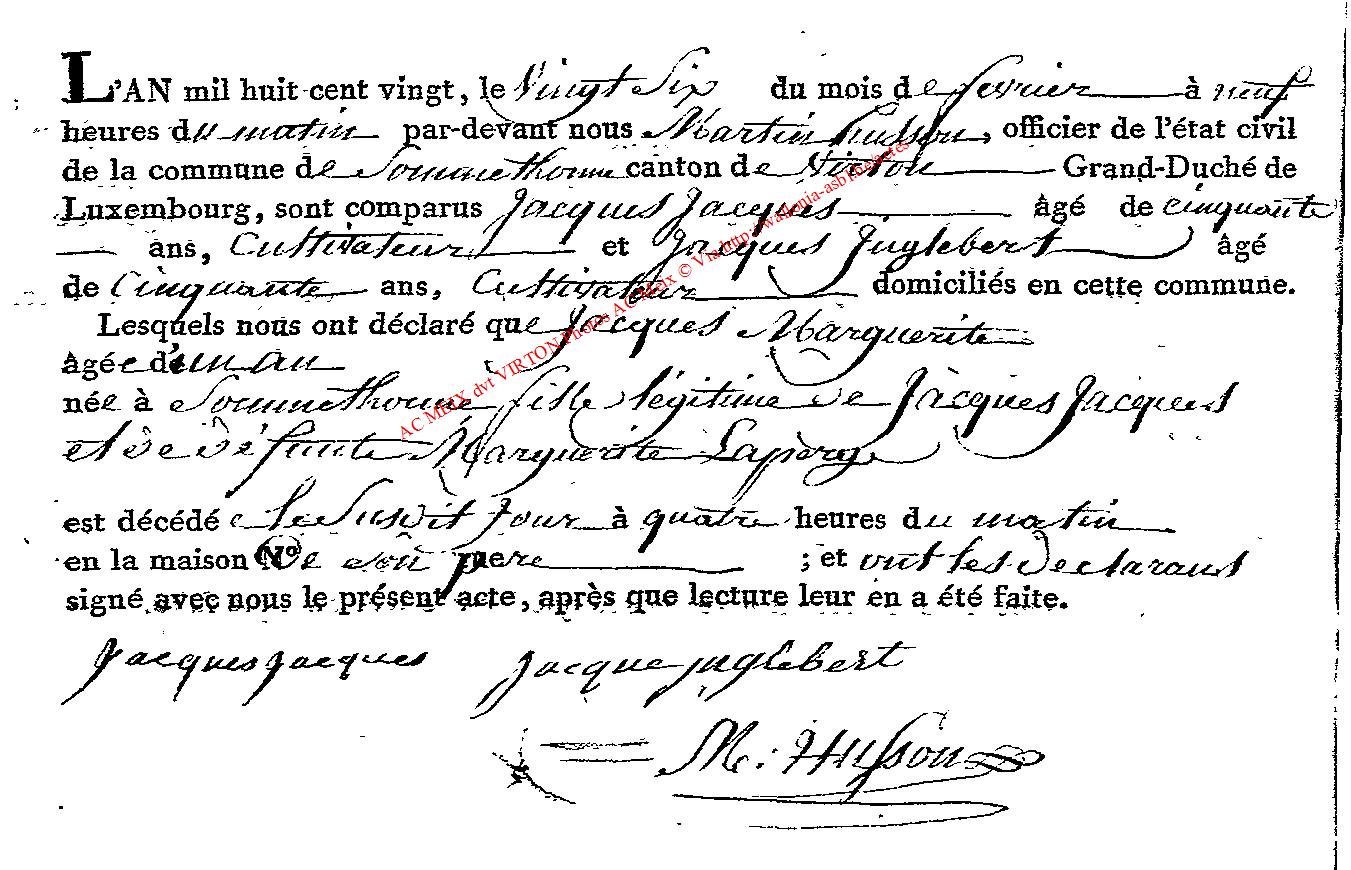 L'AN mil huit cent vingt, le vingt Six du mois de fevrier à neuf
heures du matin par-devant nous Martin husson, officier de l'état civil
de la commune de Sommethonne canton de Virton Grand-Duché de
Luxembourg, sont comparus Jacques Jacques âgé de cinquante
ans, Cultivateur et Jacques Juglebert âgé
de Cinquante ans, Cultivateur domiciliés en cette commune.
Lesquels nous ont déclaré que Jacques Marguerite
âgée d'un an
née à Sommethonne fille légitime de Jacques Jacques
et de défunte Marguerite
est décédée le Susdit Jour à quatre heures du matin
en la maison de son pere ; et ont les Declarans
signé avec nous le présent acte, après que lecture leur en a été faite.
Jacques Jacques Jacque juglebert
M. Husson
AC MeiX dvt VIRTON Photos AC Meix © Via http://wallonia-asbl.